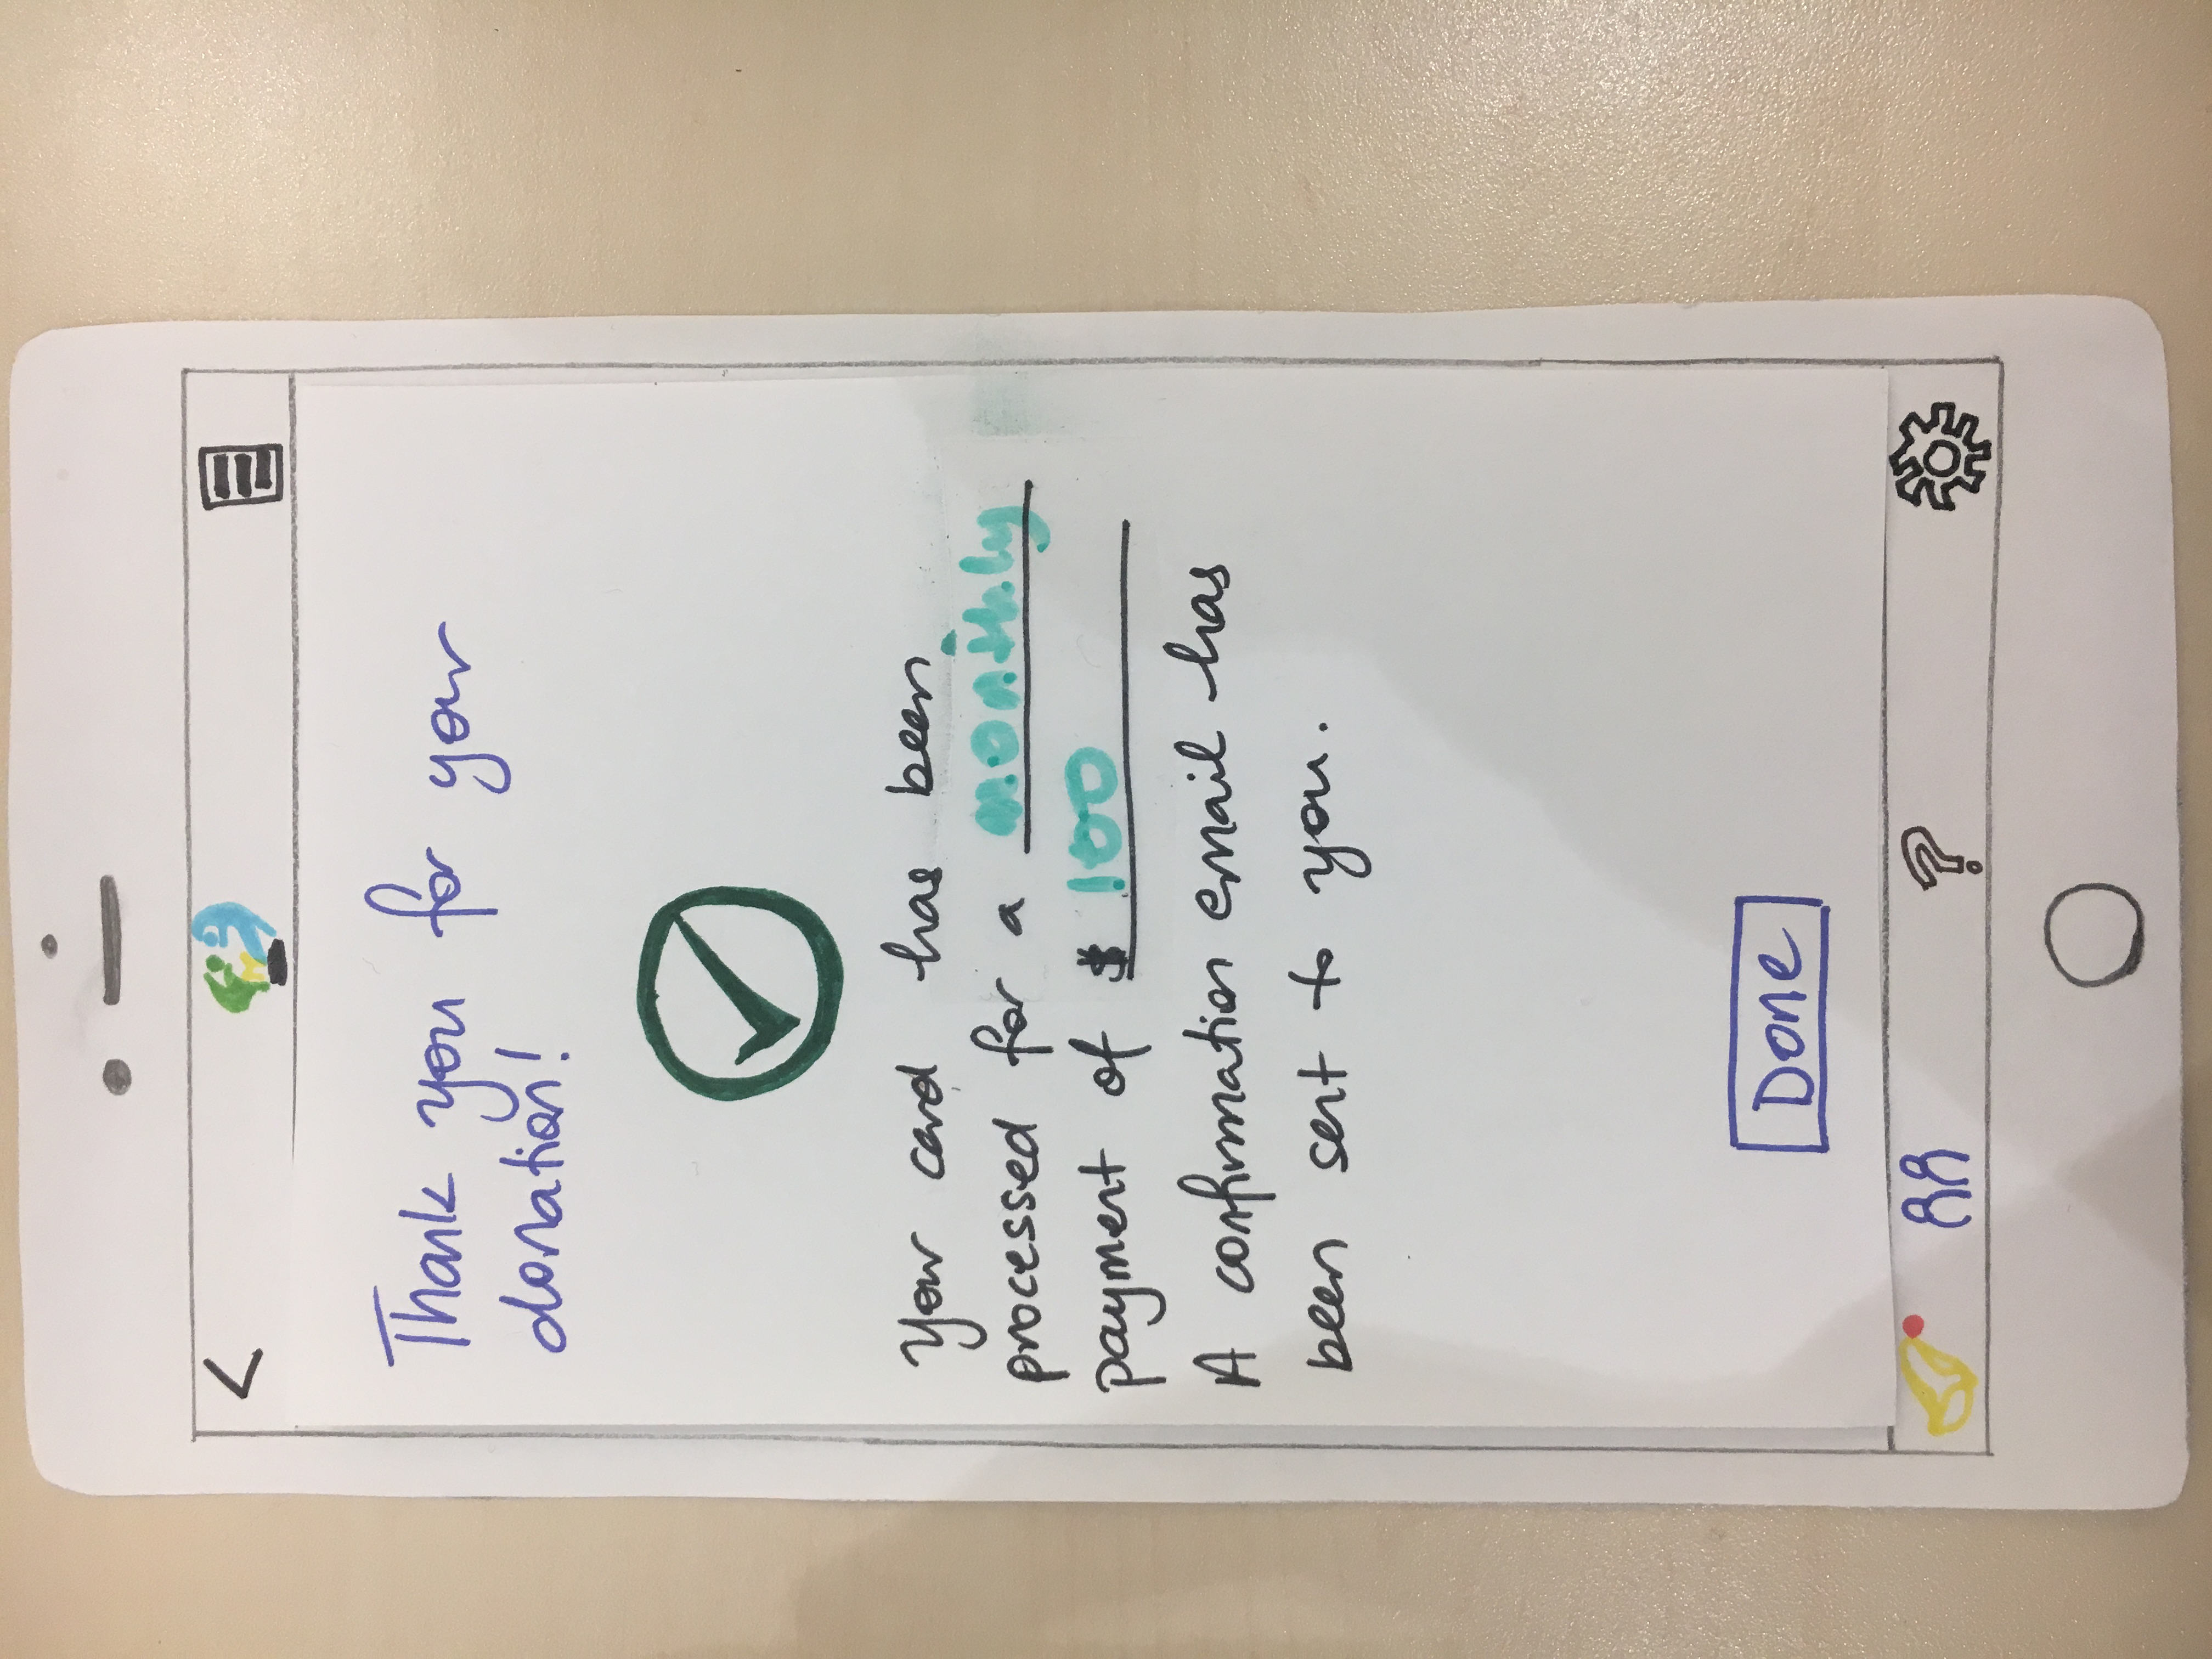 Thank you for your
donation!
Your card has been
processed for a monthly
payment of $ 100
A confirmation email has
been sent to you.
Done
?